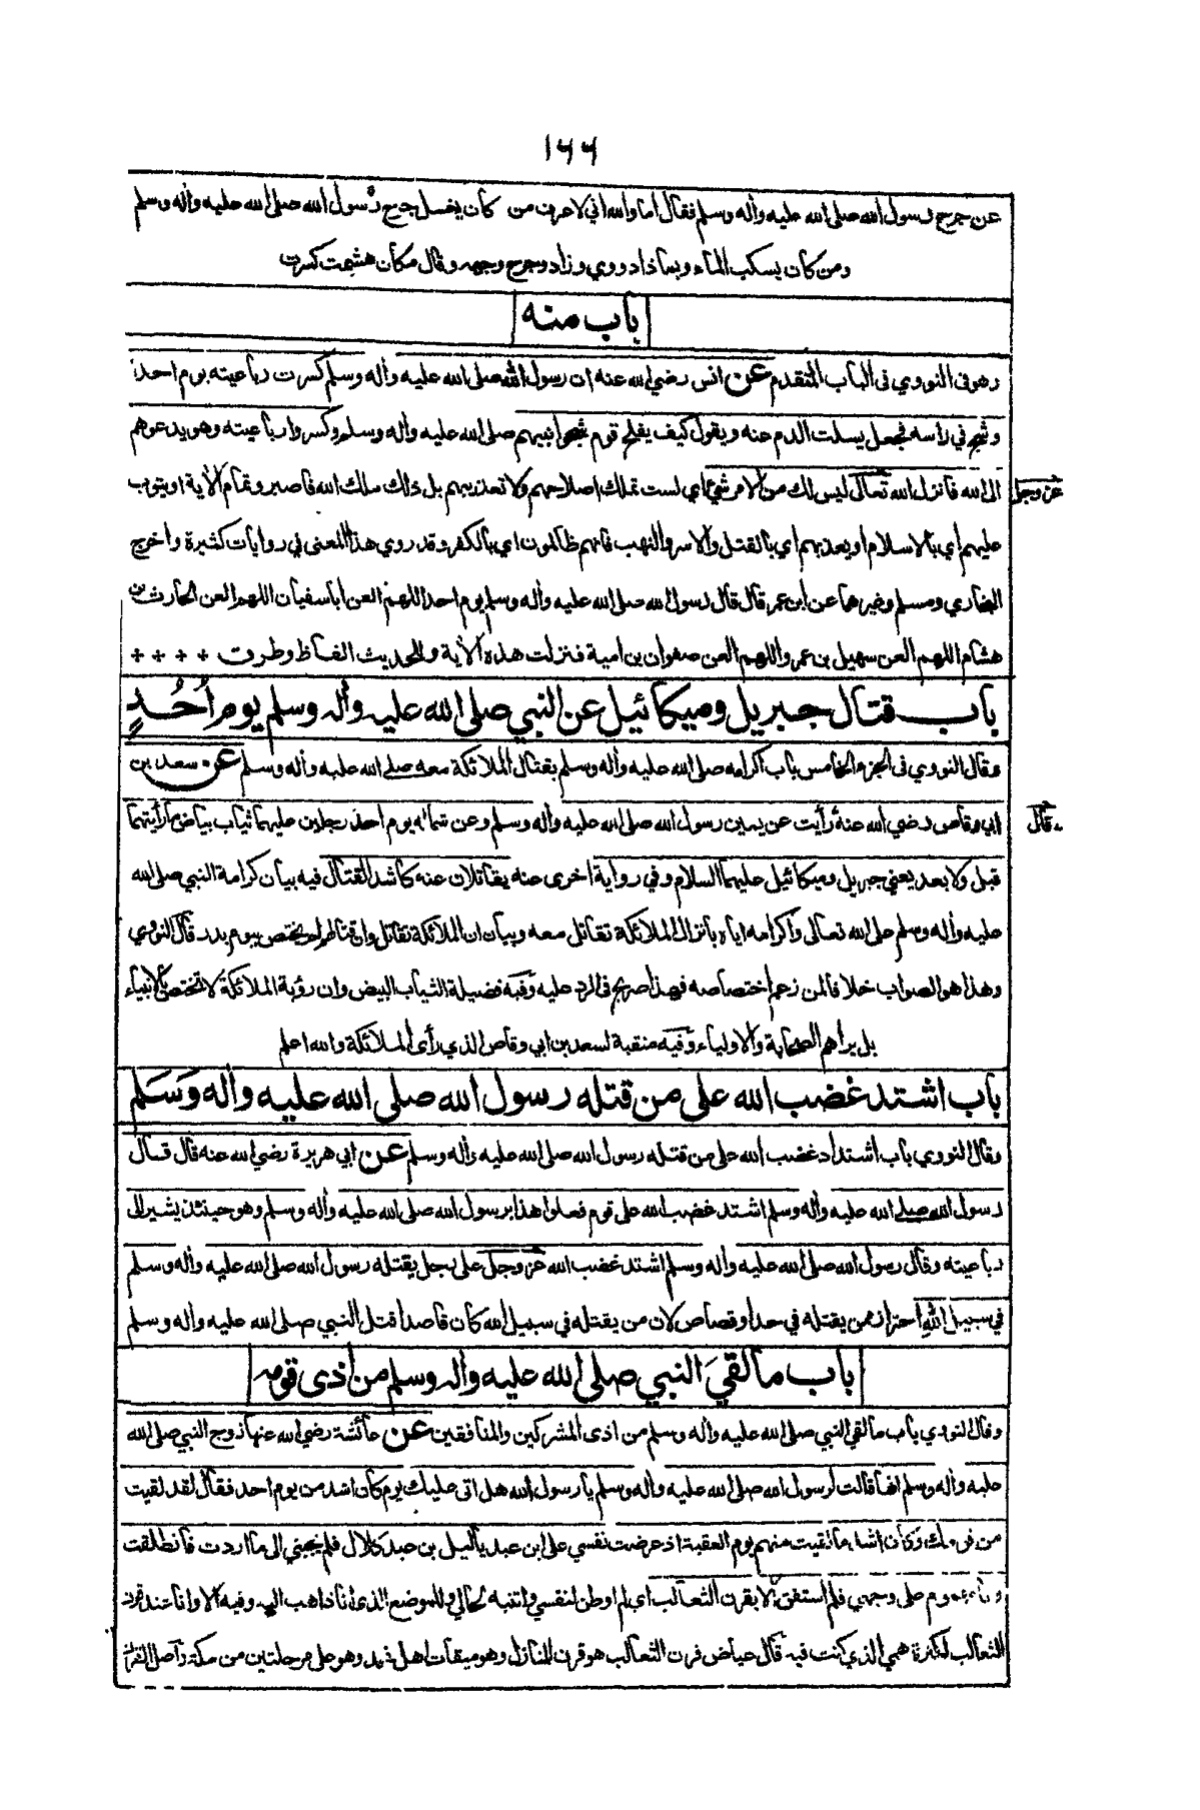 ١٦٦
عن جرح رسول الله صلى الله عليه وأله وسلم فقال أما والله اني لاعرف من كان يغسل جرح رسول الله صلى الله عليه وأله وسلم
ومن كان يسكب الماء وبماذا دووي وزاد وجرح وجهه وقال مكان هشمت كسرت
باب منه
وهو في النووي في الباب المتقدم عن انس رضي الله عنه ان رسول الله صلى الله عليه وأله وسلم كسرت رباعيته يوم احد
وشج في رأسه فجعل يسلت الدم عنه ويقول كيف يفلح قوم شجوا نبيهم صلى الله عليه وأله وسلم وكسروا رباعيته وهو يدعوهم
الى الله فانزل الله تعالى ليس لك من الامر شئ اي لست تملك اصلاحهم ولا تعذيبهم بل ذلك ملك الله فاصبر وتمام الأية او يتوب
عز وجل
عليهم اي بالاسلام او يعذبهم اي بالقتل والاسر والنهب فانهم ظالمون اي بالكفر وقد روي هذا المعنى في روايات كثيرة واخرج
البخاري ومسلم وغيرهما عن ابن عمر قال قال رسول الله صلى الله عليه وأله وسلم يوم احد اللهم العن اباسفيان اللهم العن الحارث بن
هشام اللهم العن سهيل بن عمرو اللهم العن صفوان بن امية فنزلت هذه الأية وللحديث الفاظ وطرق ++++
باب قتال جبريل وميكائيل عن النبي صلى الله عليه وأله وسلم يوم أُحُدٍ
وقال النووي في الجزء الخامس باب اكرامه صلى الله عليه وأله وسلم بقتال الملائكة معه صلى الله عليه وأله وسلم عن سعد بن
ابي وقاص رضي الله عنه رأيت عن يمين رسول الله صلى الله عليه وأله وسلم وعن شماله يوم احد رجلين عليهما ثياب بياض ما رأيتهما
قال
قبل ولا بعد يعني جبريل وميكائيل عليهما السلام وفي رواية اخرى عنه يقاتلان عنه كاشد القتال فيه بيان كرامة النبي صلى الله
عليه وأله وسلم على الله تعالى واكرامه اياه بانزال الملائكة تقاتل معه وبيان ان الملائكة تقاتل وان قتالهم لم يختص بيوم بدر قال النووي
وهذا هو الصواب خلافا لمن زعم اختصاصه فهذا صريح في الرد عليه وفيه فضيلة الثياب البيض وان رؤية الملائكة لا تختص بالانبياء
بل يراهم الصحابة والاولياء وفيه منقبة لسعد بن ابي وقاص الذي رأى الملائكة والله اعلم
باب اشتد غضب الله على من قتله رسول الله صلى الله عليه وأله وَسَلم
وقال النووي باب اشتداد غضب الله على من قتله رسول الله صلى الله عليه وأله وسلم عن ابي هريرة رضي الله عنه قال قال
رسول الله صلى الله عليه وأله وسلم اشتد غضب الله على قوم فعلوا هذا برسول الله صلى الله عليه وأله وسلم وهو حينئذ يشير الى
رباعيته وقال رسول الله صلى الله عليه وأله وسلم اشتد غضب الله عز وجل على رجل يقتله رسول الله صلى الله عليه وأله وسلم
في سبيل الله احتراز ممن يقتله في حد او قصاص لان من يقتله في سبيل الله كان قاصدا قتل النبي صلى الله عليه وأله وسلم
باب ما لقيَ النبي صلى الله عليه وأله وسلم من أذى قومه
وقال النووي باب ما لقي النبي صلى الله عليه وأله وسلم من اذى المشركين والمنافقين عن عائشة رضي الله عنها زوج النبي صلى الله
عليه وأله وسلم انها قالت لرسول الله صلى الله عليه وأله وسلم يا رسول الله هل اتى عليك يوم كان اشد من يوم احد فقال لقد لقيت
من قومك وكان اشد ما لقيت منهم يوم العقبة اذ عرضت نفسي على ابن عبد ياليل بن عبد كلال فلم يجبني الى ما اردت فانطلقت
وانا مهموم على وجهي فلم استفق الا بقرن الثعالب اي لم اوطن لنفسي وانتبه لحالي وللموضع الذي انا ذاهب اليه وفيه الا وانا عند قرن
الثعالب لكثرة همي الذي كنت فيه قال عياض قرن الثعالب هو قرن المنازل وهو ميقات اهل نجد وهو على مرحلتين من مكة واصل القرن